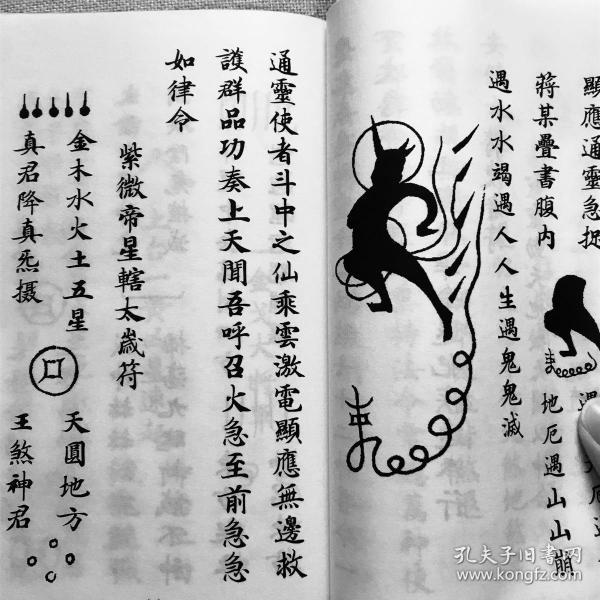 顯應通靈急捉
蔣某疊書腹內
地厄遇山山崩
遇水水竭遇人人生遇鬼鬼滅
通靈使者斗中之仙乘雲激電顯應無邊救
護群品功奏上天聞吾呼召火急至前急急
如律令
紫微帝星轄太歲符
金木水火土五星
真君降真炁摄
天圓地方
王煞神君
孔夫子旧书网
www.kongfz.com